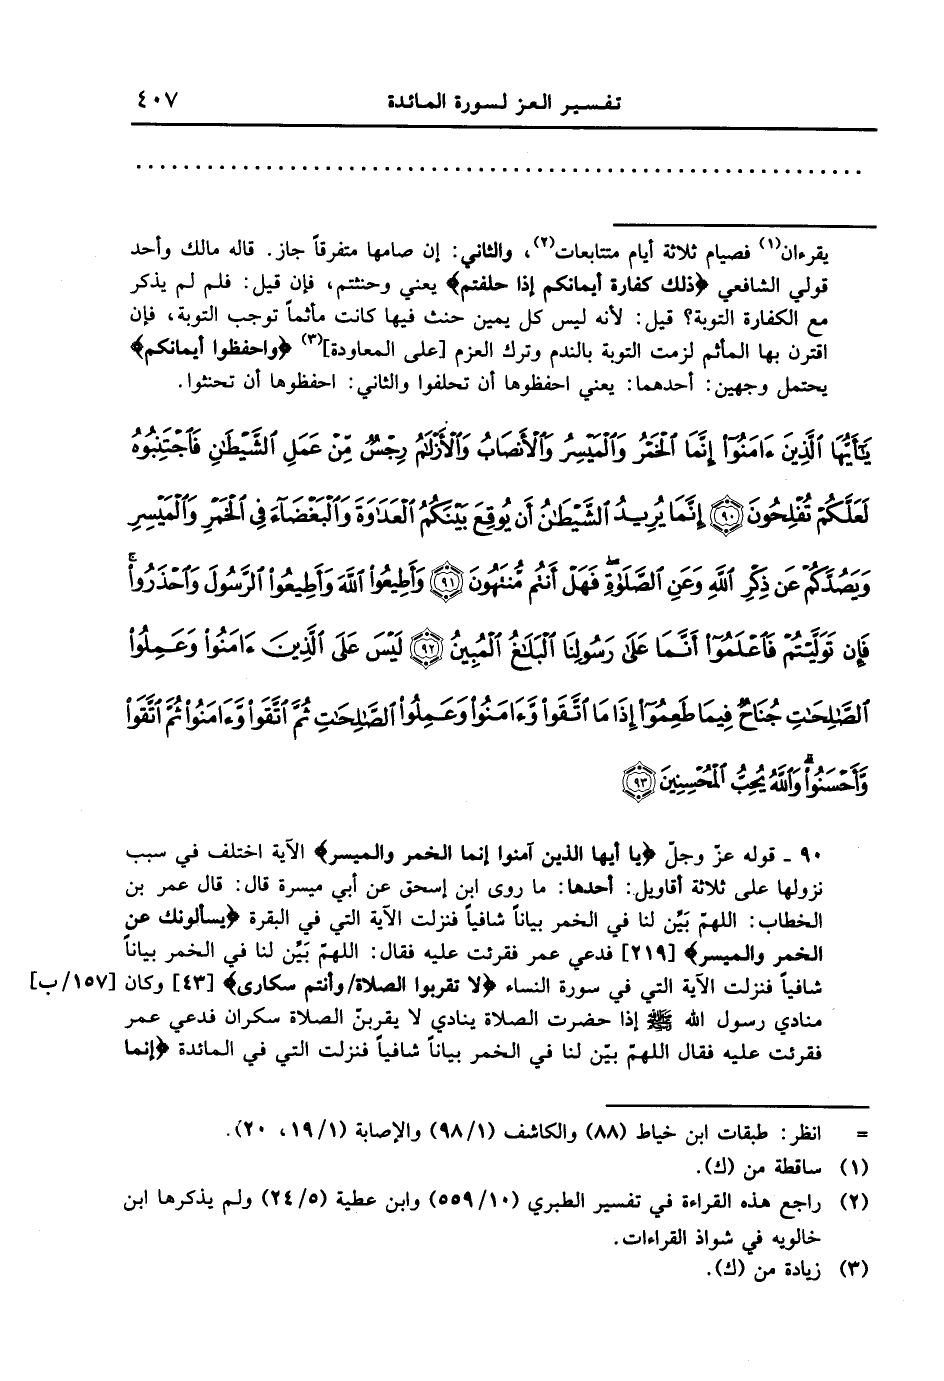 تفسير العز لسورة المائدة ٤٠٧
يقرءان(١) فصيام ثلاثة أيام متتابعات(٢)، والثاني: إن صامها متفرقاً جاز. قاله مالك وأحد
قولي الشافعي ﴿ذلك كفارة أيمانكم إذا حلفتم﴾ يعني وحنثتم، فإن قيل: فلم لم يذكر
مع الكفارة التوبة؟ قيل: لأنه ليس كل يمين حنث فيها كانت مأثماً توجب التوبة، فإن
اقترن بها المأثم لزمت التوبة بالندم وترك العزم [على المعاودة](٣) ﴿واحفظوا أيمانكم﴾
يحتمل وجهين: أحدهما: يعني احفظوها أن تحلفوا والثاني: احفظوها أن تحنثوا.
يَـٰٓأَيُّهَا ٱلَّذِينَ ءَامَنُوٓا۟ إِنَّمَا ٱلْخَمْرُ وَٱلْمَيْسِرُ وَٱلْأَنصَابُ وَٱلْأَزْلَـٰمُ رِجْسٌ مِّنْ عَمَلِ ٱلشَّيْطَـٰنِ فَٱجْتَنِبُوهُ
لَعَلَّكُمْ تُفْلِحُونَ ﴿٩٠﴾ إِنَّمَا يُرِيدُ ٱلشَّيْطَـٰنُ أَن يُوقِعَ بَيْنَكُمُ ٱلْعَدَٰوَةَ وَٱلْبَغْضَآءَ فِى ٱلْخَمْرِ وَٱلْمَيْسِرِ
وَيَصُدَّكُمْ عَن ذِكْرِ ٱللَّهِ وَعَنِ ٱلصَّلَوٰةِ ۖ فَهَلْ أَنتُم مُّنتَهُونَ ﴿٩١﴾ وَأَطِيعُوا۟ ٱللَّهَ وَأَطِيعُوا۟ ٱلرَّسُولَ وَٱحْذَرُوا۟ ۚ
فَإِن تَوَلَّيْتُمْ فَٱعْلَمُوٓا۟ أَنَّمَا عَلَىٰ رَسُولِنَا ٱلْبَلَـٰغُ ٱلْمُبِينُ ﴿٩٢﴾ لَيْسَ عَلَى ٱلَّذِينَ ءَامَنُوا۟ وَعَمِلُوا۟
ٱلصَّـٰلِحَـٰتِ جُنَاحٌ فِيمَا طَعِمُوٓا۟ إِذَا مَا ٱتَّقَوا۟ وَّءَامَنُوا۟ وَعَمِلُوا۟ ٱلصَّـٰلِحَـٰتِ ثُمَّ ٱتَّقَوا۟ وَّءَامَنُوا۟ ثُمَّ ٱتَّقَوا۟
وَّأَحْسَنُوا۟ ۗ وَٱللَّهُ يُحِبُّ ٱلْمُحْسِنِينَ ﴿٩٣﴾
٩٠ ـ قوله عزّ وجلّ ﴿يا أيها الذين آمنوا إنما الخمر والميسر﴾ الآية اختلف في سبب
نزولها على ثلاثة أقاويل: أحدها: ما روى ابن إسحق عن أبي ميسرة قال: قال عمر بن
الخطاب: اللهمّ بَيِّن لنا في الخمر بياناً شافياً فنزلت الآية التي في البقرة ﴿يسألونك عن
الخمر والميسر﴾ [٢١٩] فدعي عمر فقرئت عليه فقال: اللهمّ بَيِّن لنا في الخمر بياناً
شافياً فنزلت الآية التي في سورة النساء ﴿لا تقربوا الصلاة/وأنتم سكارى﴾ [٤٣] وكان [١٥٧/ب]
منادي رسول الله ﷺ إذا حضرت الصلاة ينادي لا يقربنّ الصلاة سكران فدعي عمر
فقرئت عليه فقال اللهمّ بيّن لنا في الخمر بياناً شافياً فنزلت التي في المائدة ﴿إنما
= انظر: طبقات ابن خياط (٨٨) والكاشف (٩٨/١) والإصابة (١٩/١، ٢٠).
(١) ساقطة من (ك).
(٢) راجع هذه القراءة في تفسير الطبري (٥٥٩/١٠) وابن عطية (٢٤/٥) ولم يذكرها ابن
خالويه في شواذ القراءات.
(٣) زيادة من (ك).